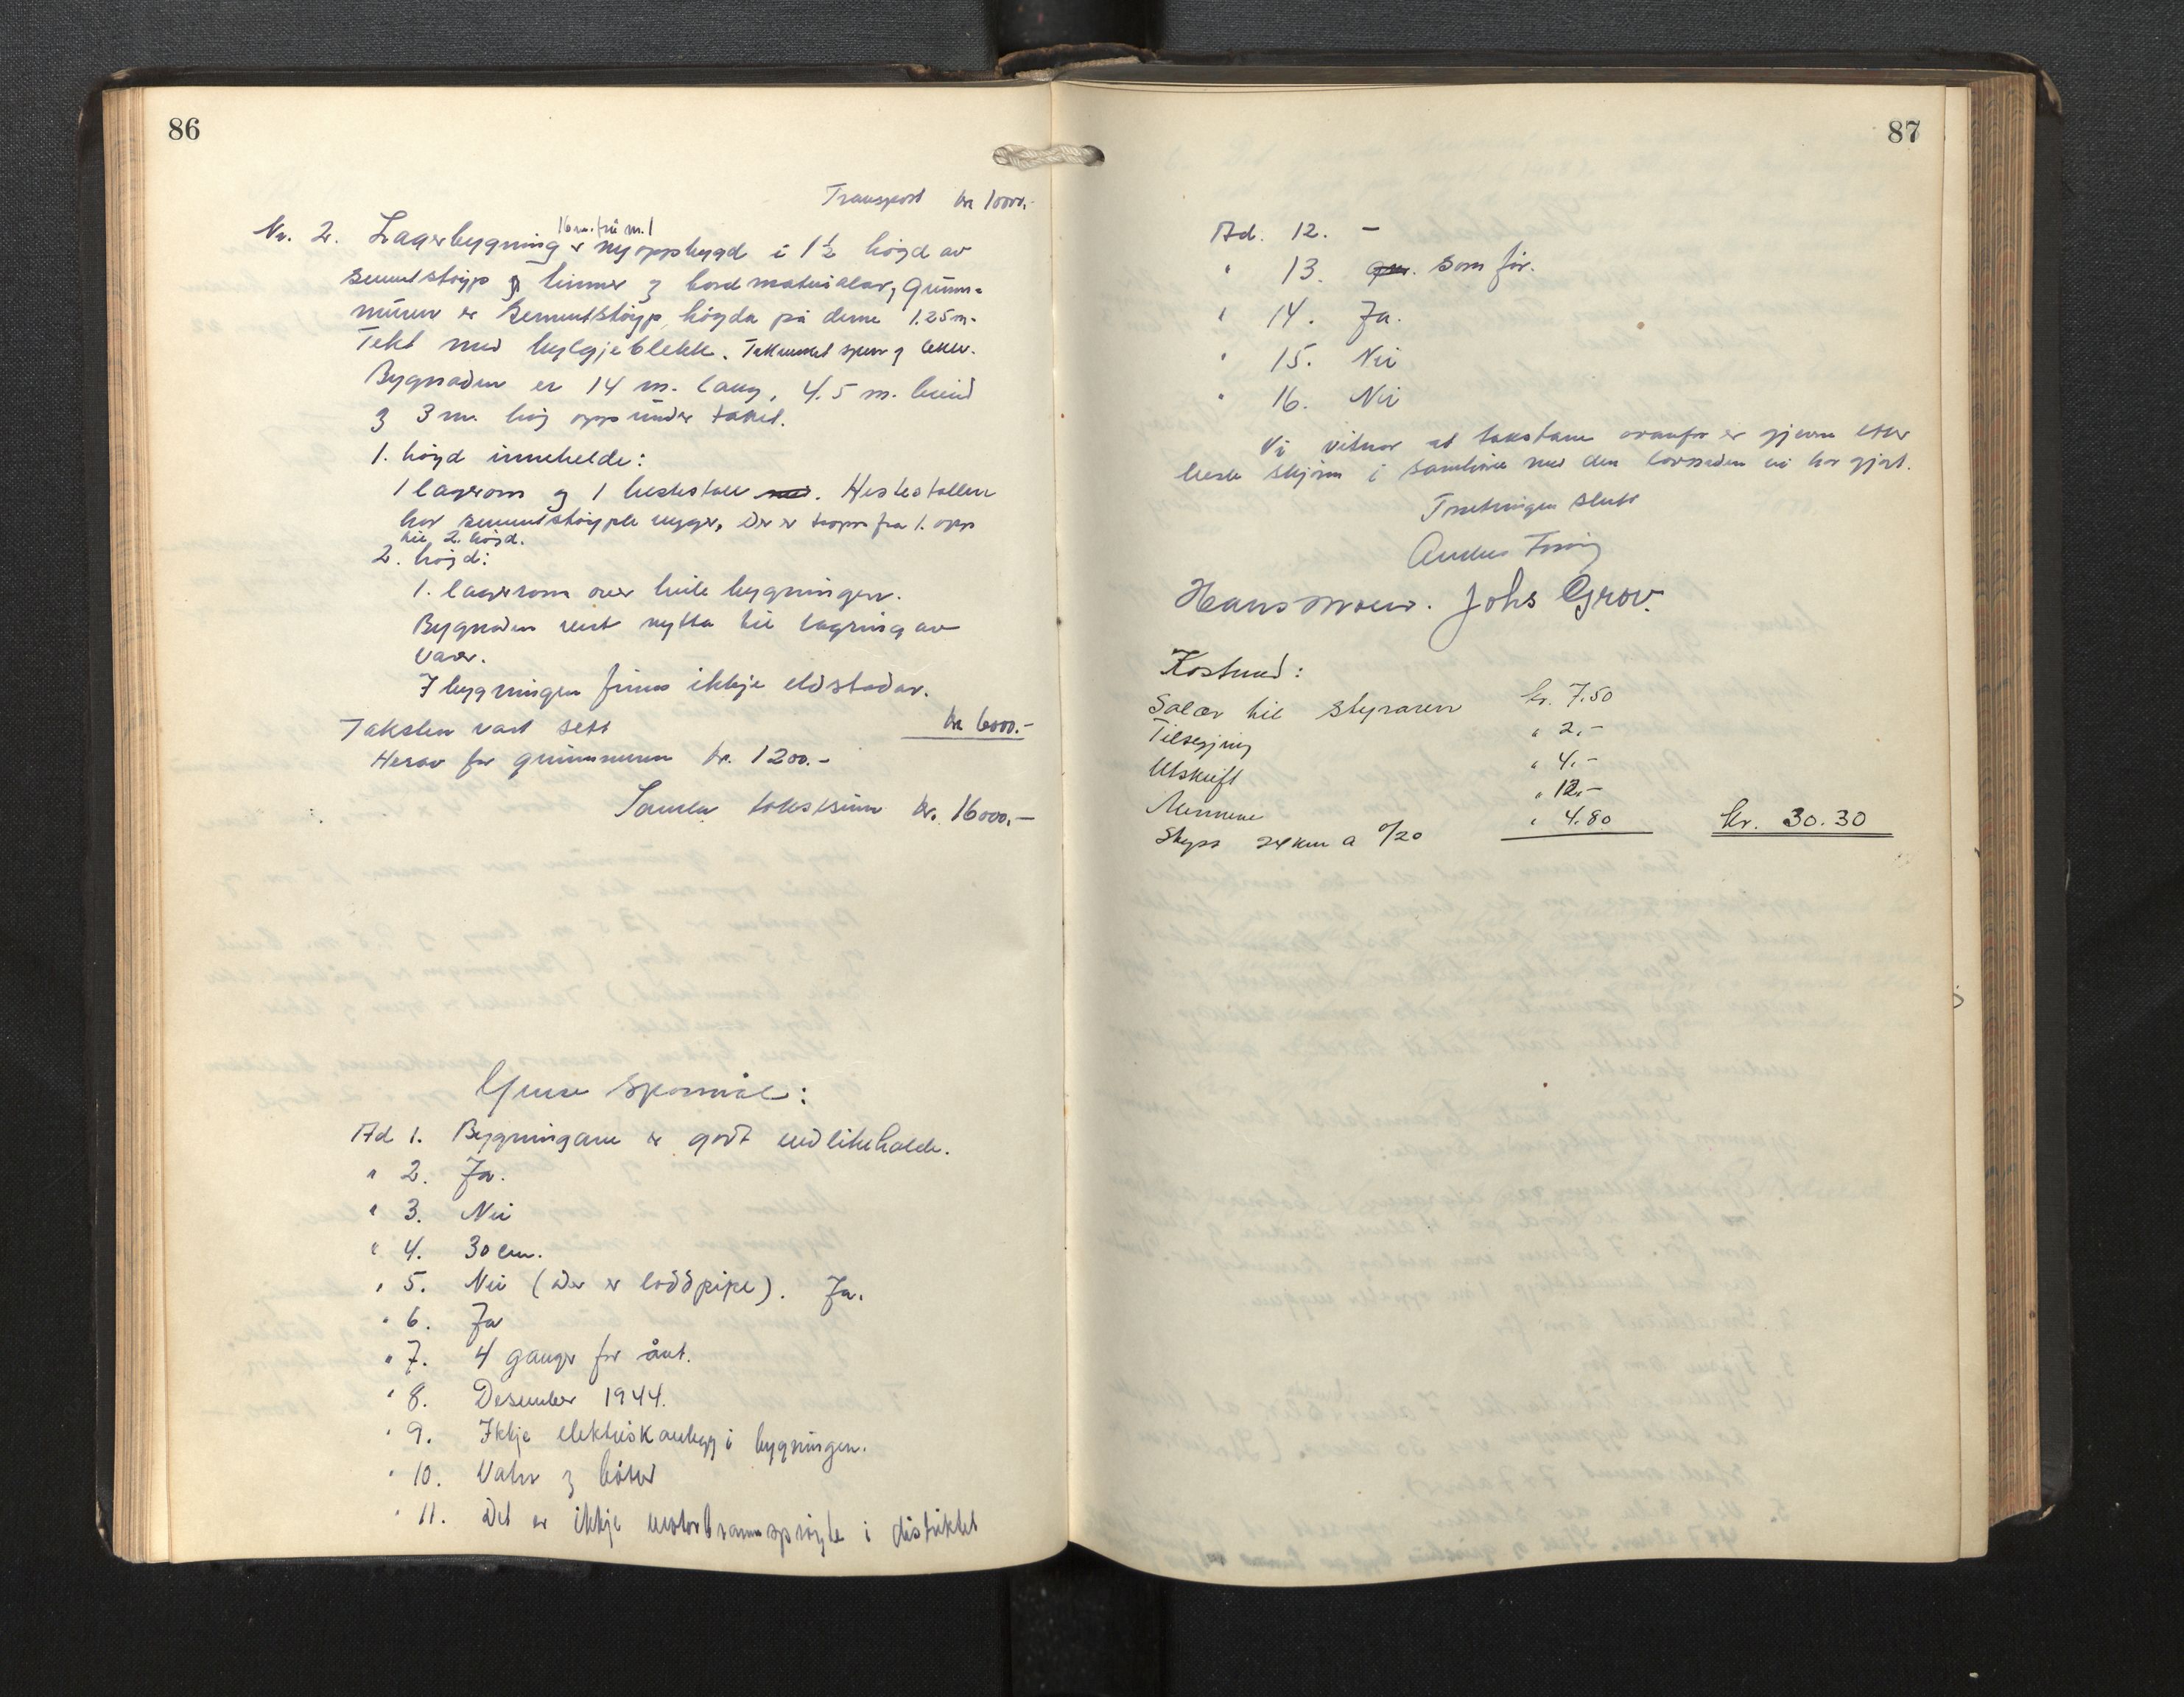 86
Transport kr 10000.-
16 m. frå nr. 1
Nr. 2. Lagerbygning er nyoppbygd i 1½ høgd av
sementstøyp og timmer og bordmaterialar, Grunn-
muren er sementstøyp, høgda på denne 1.25 m.
Tekt med bylgjeblekk. Takverket sperr og lekter.
Bygnaden er 14 m. lang, 4.5 m. breid
og 3 m. høg opp under taket.
1. høgd inneheld:
1 lagerom og 1 hestestall. Hestestallen
har sementstøypte vegger, der er tropp fra 1. opp
til 2. høgd.
2. høgd:
1. lagerrom over heile bygningen.
Bygnaden vert nytta til lagring av
varer.
I bygningen finns ikkje eldstadar.
Taksten vart sett kr 6000.-
Herav for grunnmuren kr. 1200.-
Samla takstsum kr. 16000.-
Ymse spørsmål:
Ad 1. Bygningane er godt vedlikehalde.
" 2. Ja.
" 3. Nei
" 4. 30 cm.
" 5. Nei (Der er loddpipe). Ja.
" 6. Ja
" 7. 4 ganger for året.
" 8. Desember 1944.
" 9. Ikkje elektrisk anlegg i bygningen.
" 10. Vatn og bøtter
" 11. Det er ikkje motorbrannsprøyte i distriktet
87
Ad. 12. -
" 13. som før.
" 14. Ja.
" 15. Nei
" 16. Nei
Vi vitnar at takstane ovanfor er gjevne etter
beste skjønn i samhøve med den lovnaden vi har gjort.
Forretningen slutt
Hans Moen. Johs Grov.
Kostnad:
Salær til styraren kr. 7.50
Tilseging " 2.-
Utskrift " 4.-
Mennene " 12.-
Skyss 24 km a 0/20 " 4.80 kr. 30.30